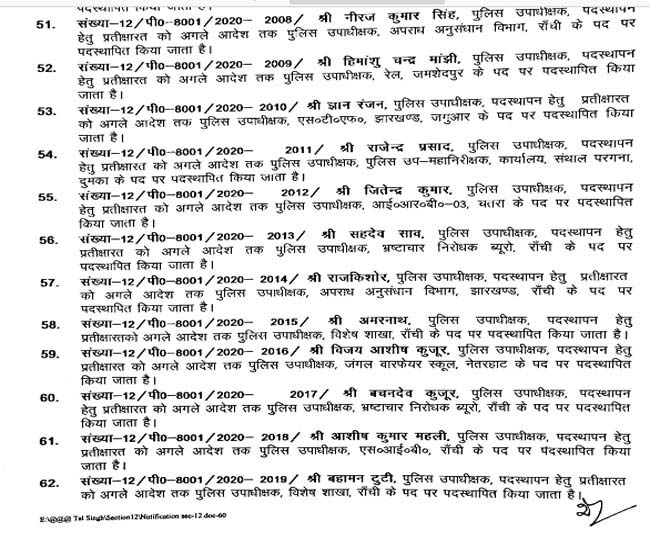 पदस्थापित किया जाता है।
51. संख्या-12/पी0-8001/2020- 2008/ श्री नीरज कुमार सिंह, पुलिस उपाधीक्षक, पदस्थापन
हेतु प्रतीक्षारत को अगले आदेश तक पुलिस उपाधीक्षक, अपराध अनुसंधान विभाग, राँची के पद पर
पदस्थापित किया जाता है।
52. संख्या-12/पी0-8001/2020- 2009/ श्री हिमांशु चन्द्र मांझी, पुलिस उपाधीक्षक, पदस्थापन
हेतु प्रतीक्षारत को अगले आदेश तक पुलिस उपाधीक्षक, रेल, जमशेदपुर के पद पर पदस्थापित किया
जाता है।
53. संख्या-12/पी0-8001/2020- 2010/ श्री ज्ञान रंजन, पुलिस उपाधीक्षक, पदस्थापन हेतु प्रतीक्षारत
को अगले आदेश तक पुलिस उपाधीक्षक, एस०टी०एफ०, झारखण्ड, जगुआर के पद पर पदस्थापित किया
जाता है।
54. संख्या-12/पी0-8001/2020- 2011/ श्री राजेन्द्र प्रसाद, पुलिस उपाधीक्षक, पदस्थापन
हेतु प्रतीक्षारत को अगले आदेश तक पुलिस उपाधीक्षक, पुलिस उप-महानिरीक्षक, कार्यालय, संथाल परगना,
दुमका के पद पर पदस्थापित किया जाता है।
55. संख्या-12/पी0-8001/2020- 2012/ श्री जितेन्द्र कुमार, पुलिस उपाधीक्षक, पदस्थापन
हेतु प्रतीक्षारत को अगले आदेश तक पुलिस उपाधीक्षक, आई०आर०बी०-03, चतरा के पद पर पदस्थापित
किया जाता है।
56. संख्या-12/पी0-8001/2020- 2013/ श्री सहदेव साव, पुलिस उपाधीक्षक, पदस्थापन हेतु
प्रतीक्षारत को अगले आदेश तक पुलिस उपाधीक्षक, भ्रष्टाचार निरोधक ब्यूरो, राँची के पद पर
पदस्थापित किया जाता है।
57. संख्या-12/पी0-8001/2020- 2014/ श्री राजकिशोर, पुलिस उपाधीक्षक, पदस्थापन हेतु प्रतीक्षारत
को अगले आदेश तक पुलिस उपाधीक्षक, अपराध अनुसंधान विभाग, झारखण्ड, राँची के पद पर
पदस्थापित किया जाता है।
58. संख्या-12/पी0-8001/2020- 2015/ श्री अमरनाथ, पुलिस उपाधीक्षक, पदस्थापन हेतु
प्रतीक्षारतको अगले आदेश तक पुलिस उपाधीक्षक, विशेष शाखा, राँची के पद पर पदस्थापित किया जाता है।
59. संख्या-12/पी0-8001/2020- 2016/ श्री विजय आशीष कुजूर, पुलिस उपाधीक्षक, पदस्थापन हेतु
प्रतीक्षारत को अगले आदेश तक पुलिस उपाधीक्षक, जंगल वारफेयर स्कूल, नेतरहाट के पद पर पदस्थापित
किया जाता है।
60. संख्या-12/पी0-8001/2020- 2017/ श्री बचनदेव कुजूर, पुलिस उपाधीक्षक, पदस्थापन
हेतु प्रतीक्षारत को अगले आदेश तक पुलिस उपाधीक्षक, भ्रष्टाचार निरोधक ब्यूरो, राँची के पद पर पदस्थापित
किया जाता है।
61. संख्या-12/पी0-8001/2020- 2018/ श्री आशीष कुमार महली, पुलिस उपाधीक्षक, पदस्थापन हेतु
प्रतीक्षारत को अगले आदेश तक पुलिस उपाधीक्षक, एस०आई०बी०, राँची के पद पर पदस्थापित किया
जाता है।
62. संख्या-12/पी0-8001/2020- 2019/ श्री बहामन टुटी, पुलिस उपाधीक्षक, पदस्थापन हेतु प्रतीक्षारत
को अगले आदेश तक पुलिस उपाधीक्षक, विशेष शाखा, राँची के पद पर पदस्थापित किया जाता है।
E:\@@@ Tal Singh\Section12\Notification sec-12.doc-60